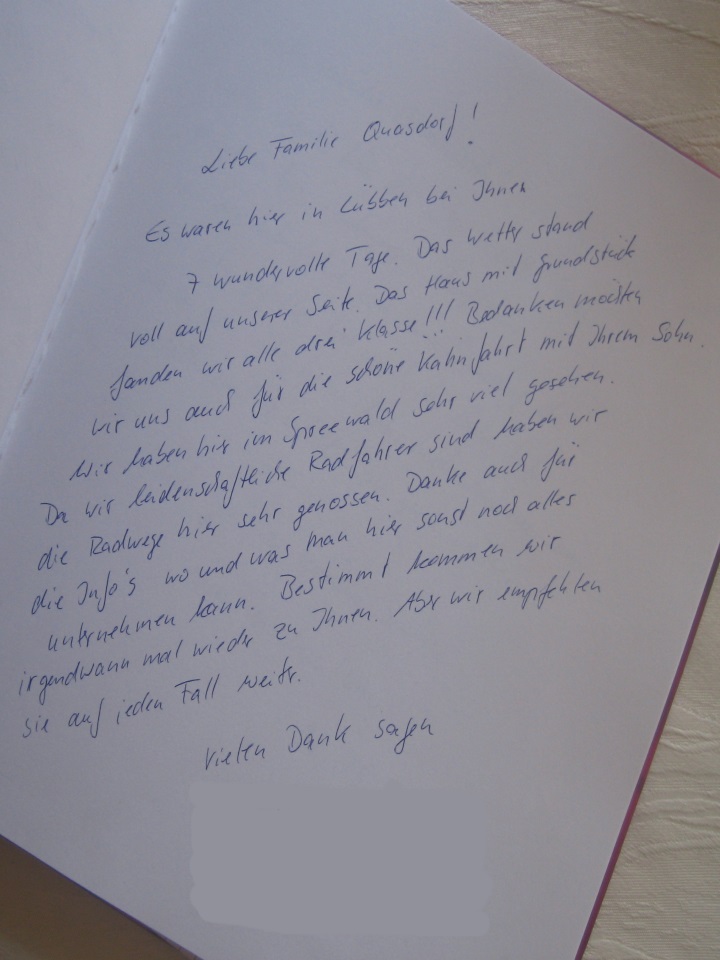 Liebe Familie Quasdorf!
Es waren hier in Lübben bei Ihnen
7 wundervolle Tage. Das Wetter stand
voll auf unserer Seite. Das Haus mit Grundstück
fanden wir alle drei klasse!!! Bedanken möchten
wir uns auch für die schöne Kahnfahrt mit Ihrem Sohn.
Wir haben hier im Spreewald sehr viel gesehen.
Da wir leidenschaftliche Radfahrer sind haben wir
die Radwege hier sehr genossen. Danke auch für
die Info's wo und was man hier sonst noch alles
unternehmen kann. Bestimmt kommen wir
irgendwann mal wieder zu Ihnen. Aber wir empfehlen
sie auf jeden Fall weiter.
Vielen Dank sagen